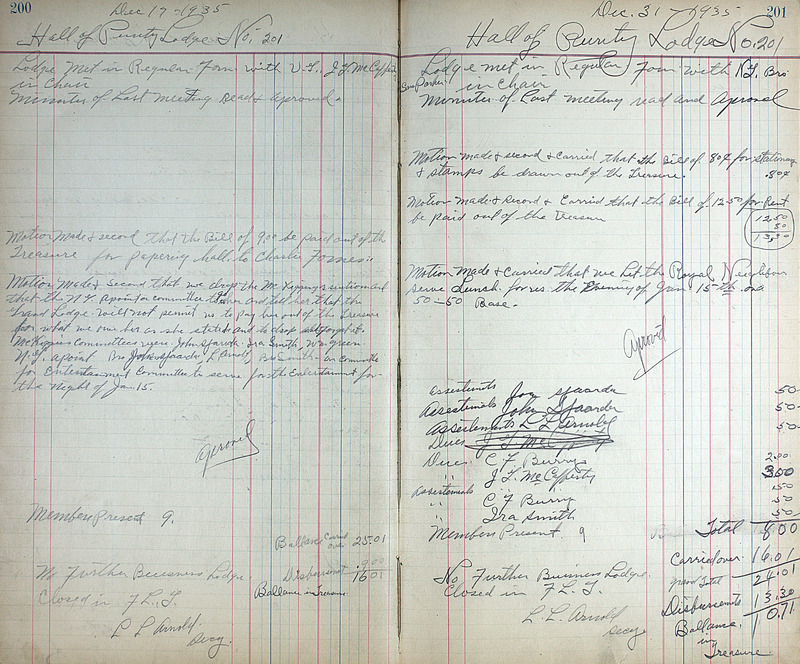 200
Dec 17 - 1935
Hall of Purity Lodge No. 201
Lodge Met in Regular Form with V.G., J. G. McCafferty
in Chair
Minutes of Last meeting Read & Aproved.
Motion Made & second that the Bill of 9.00 be paid out of the
Treasure for papering hall to Charlie Fornes:
Motion Made & Second that we drop the
that the N.G. Apoint a committee and tell her that the
Grand Lodge will not permit us to pay her out of the Treasure
for what we owe her as she stated and to drop
committee were John Sfaarda. Ira Smith. Wm. Green.
N.G. apoint Bro John Sfaarda L. Arnold, Bro Smith - on Committe
for Entertainment Committe to serve for the Entertainment for
the Night of Jan 15.
Aproved
Members Present 9.
Ballance Carried over 25.01
Disbursment 9.00
16.01
Ballance in Treasure
No Further Buisness Lodge
Closed in F. L. T.
L L Arnold.
Secy.
201
Dec. 31 - 1935
Hall of Purity Lodge No. 201
Lodge met in Regular Form with N.G. Bro
Sam Parker in Chair
Minutes of Last meeting read and Aproved
Motion made & second & Carried that the Bill of 80¢ for stationary
& stamps be drawn out of the Treasure. .80¢
Motion Made & Second & Carried that the Bill of 12.50 for Rent
be paid out of the Treasure
12.50
80
13.30
Motion Made & Carried that we let the Royal Neighbour
serve Lunch for us the Evening of Jan 15-th on a
50-50 Base.
Aprovd
Assestments Sfaarda 50-
Assestments John Sfaarda 50-
Assestments L L Arnold 50-
Dues J G McCafferty
Dues C F Burns 2.00
" J. G. McCafferty 3.00
Assestments " 50
" C F Burns 50
" Ira Smith 50
Members Present. 9
Total 8.00
Carried over 16.01
grand Total 24.01
Disbursments 13.30
Ballance 10.71
in
Treasure
No Further Buisness Lodge
Closed in F. L. T.
L. L. Arnold
Secy